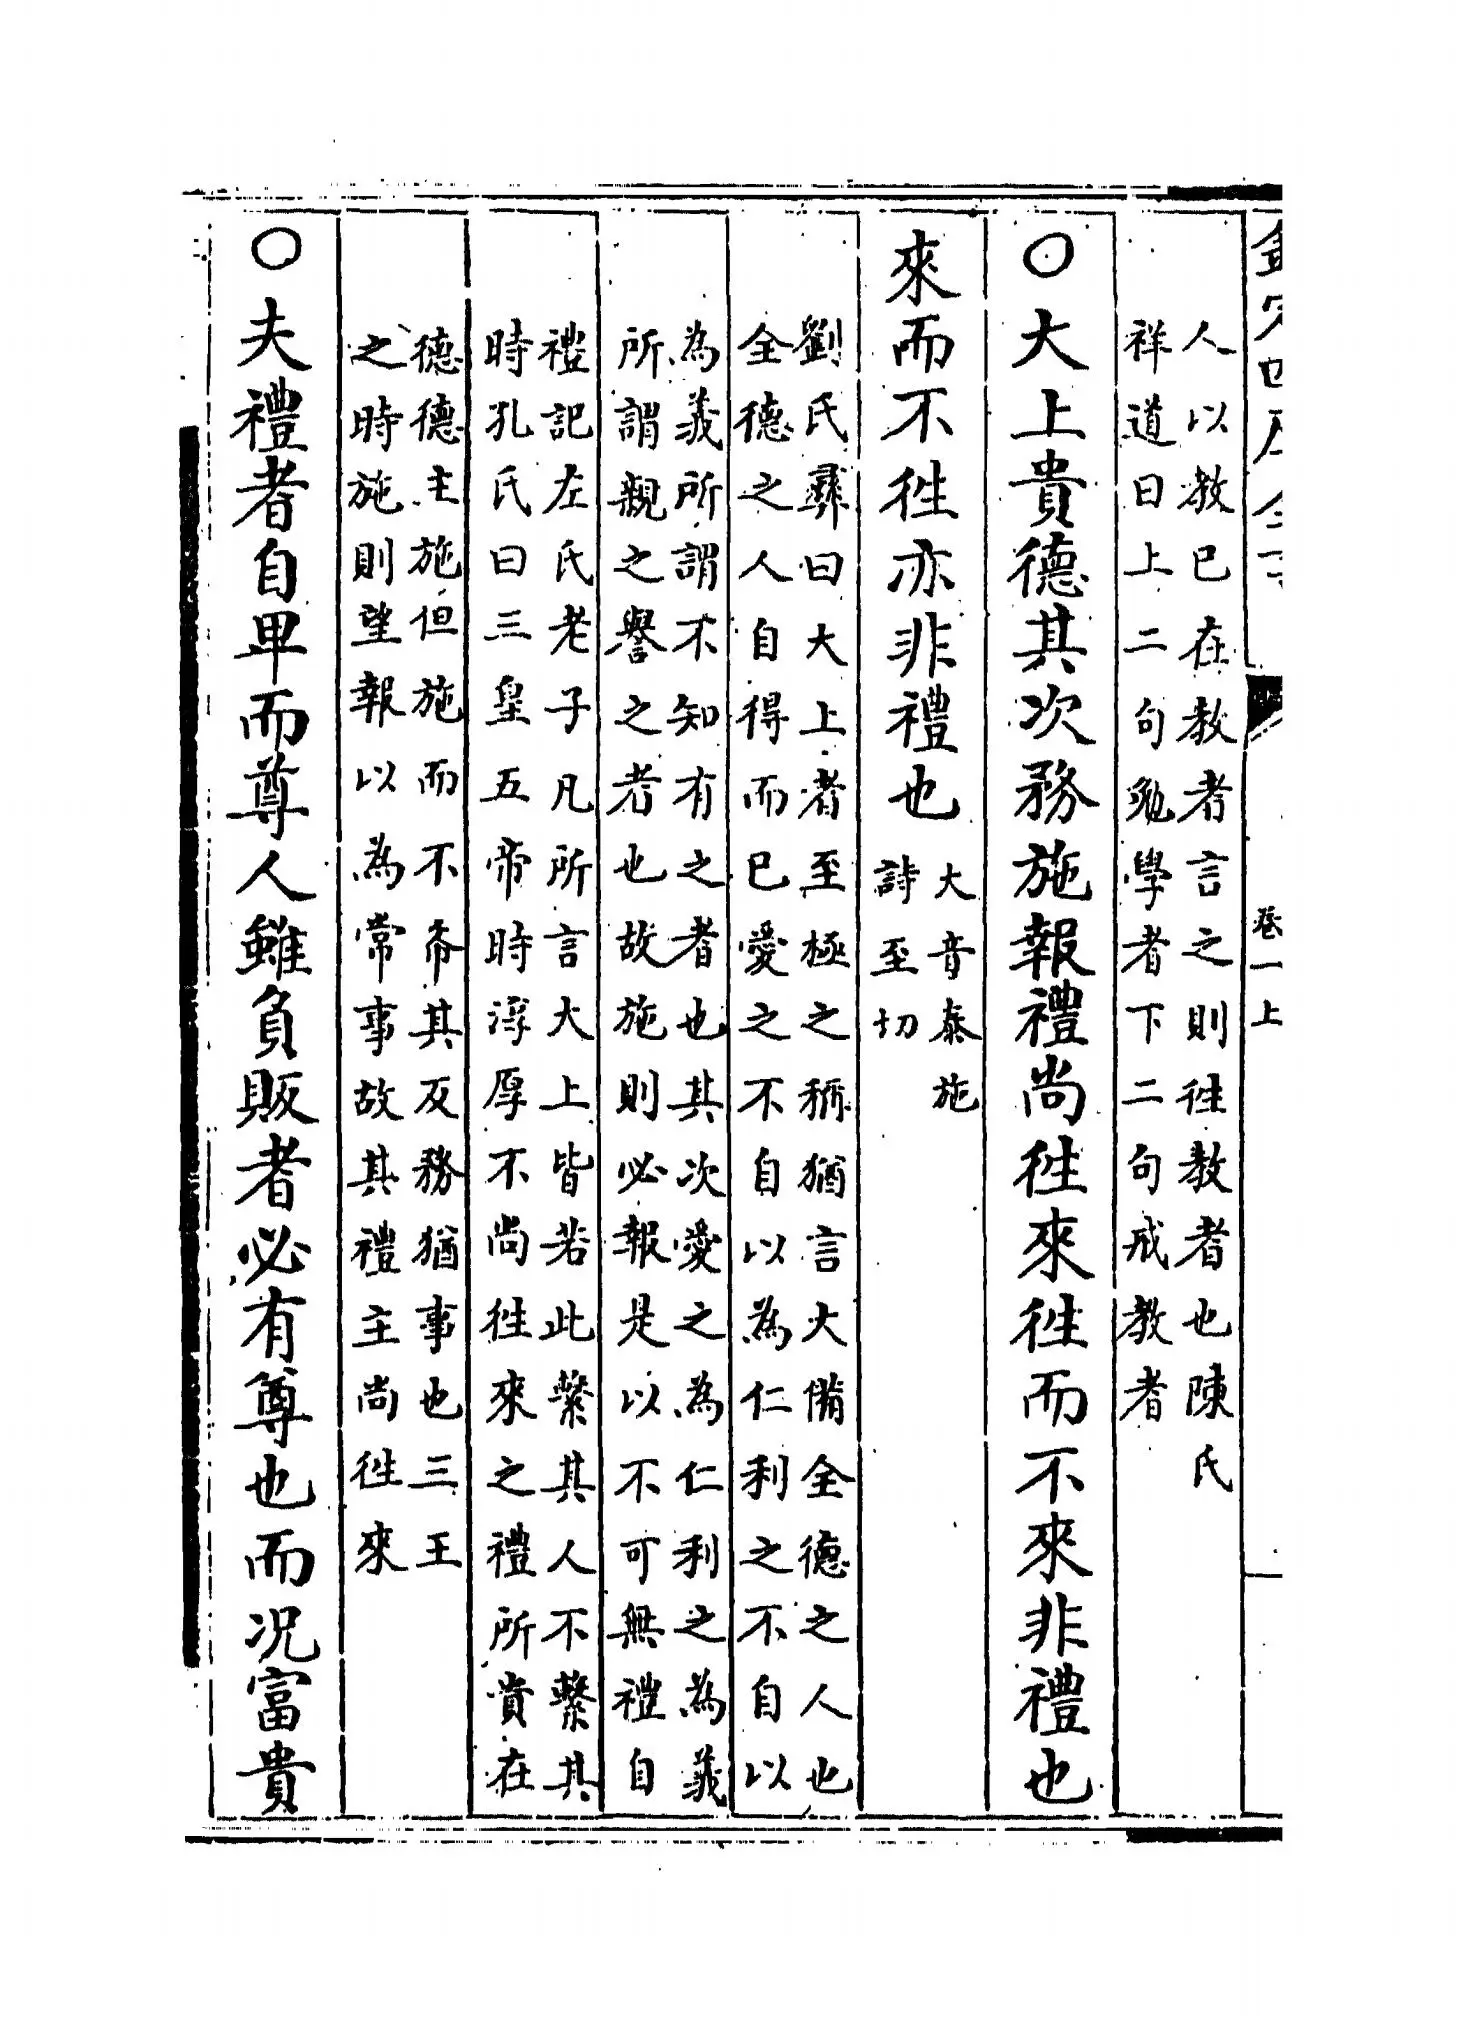 欽定四庫全書
卷一上
人以教已在教者言之則徃教者也陳氏
祥道曰上二句勉學者下二句戒教者
○大上貴德其次務施報禮尚徃來徃而不來非禮也
來而不徃亦非禮也
大音泰施
詩至切
劉氏彛曰大上者至極之稱猶言大備全德之人也
全德之人自得而已愛之不自以為仁利之不自以
為義所謂不知有之者也其次愛之為仁利之為義
所謂親之譽之者也故施則必報是以不可無禮自
禮記左氏老子凡所言大上皆若此繫其人不繫其
時孔氏曰三皇五帝時淳厚不尚徃來之禮所貴在
德德主施但施而不希其反務猶事也三王
之時施則望報以為常事故其禮主尚徃來
○夫禮者自卑而尊人雖負販者必有尊也而况富貴